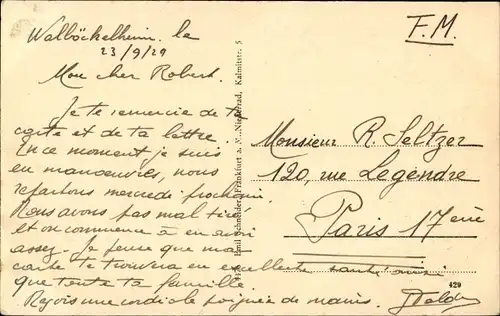 Walböckelheim, le
23/9/29
Mon cher Robert.
Je te remercie de ta
carte et de ta lettre.
En ce moment je suis
en manoeuvres, nous
repartons mercredi prochain.
Nous avons pas mal tiré
et on commence à en avoir
assez. Je pense que ma
carte te trouvera en excellente santé ainsi
que toute ta famille.
Reçois une cordiale poignée de mains.
F.M.
Monsieur R. Seltzer
120, rue Legendre
Paris 17ème
Emil Schneider, Frankfurt a. M.-Niederrad, Kalmitstr. 5
429